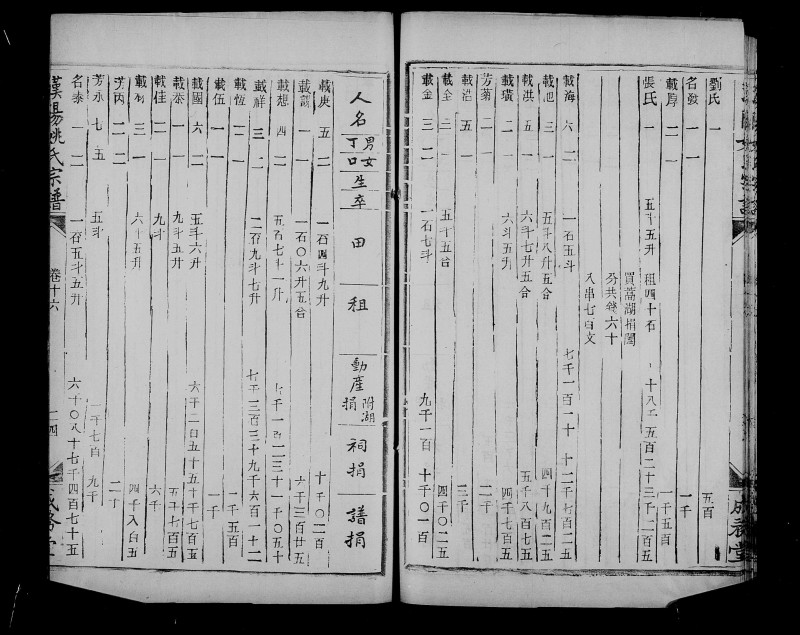 劉氏 一 五百
名發 一 一 一千
載厚 二 一 一千五百
張氏 一 五斗五升 租四十石 十八千五百二十三 千二百五
買蒿湖捐閣
分共錢六十
入串七百文
載海 六 二 一石五斗 七千一百二十 十二千七百二五
載池 三 一 五斗八升五合 四千九百二五
載洪 五 一 六斗七升五合 五千八百七五
載璜 二 一 六斗五升 四千七百五
芳菊 一 二 二千
載浩 五 一 三千
載全 二 一 五十五合 四千〇二五
載金 三 二 一石七斗 九千一百 十千〇一百
人名 男丁女口 生卒 田 租 動產捐附湖 祠捐 譜捐
載庚 五 二 一石四斗九升 十千〇二百
載韻 一 一 一石〇六升五合 六千三百廿五
載想 四 二 五石七斗一升 七千一百二三十一千〇五十
載祥 三 二 二石九斗七升 七千三百三十九千六百一十二
載恆 二 一 二千五百
載伍 一 一 一千
載國 六 二 五斗六升 六千二百五十五十千七百五
載泰 一 一 九斗五升 五千七百五
載佳 二 一 九斗 六千
載利 三 一 六斗五升 四千八百五
芳丙 二 二 二千
芳永 七 五 五斗 一千七百 九千
名泰 一 二 一石五斗五升 六十〇八十七千四百七十五
漢陽姚氏宗譜 卷十六 一四 成務堂
成務堂